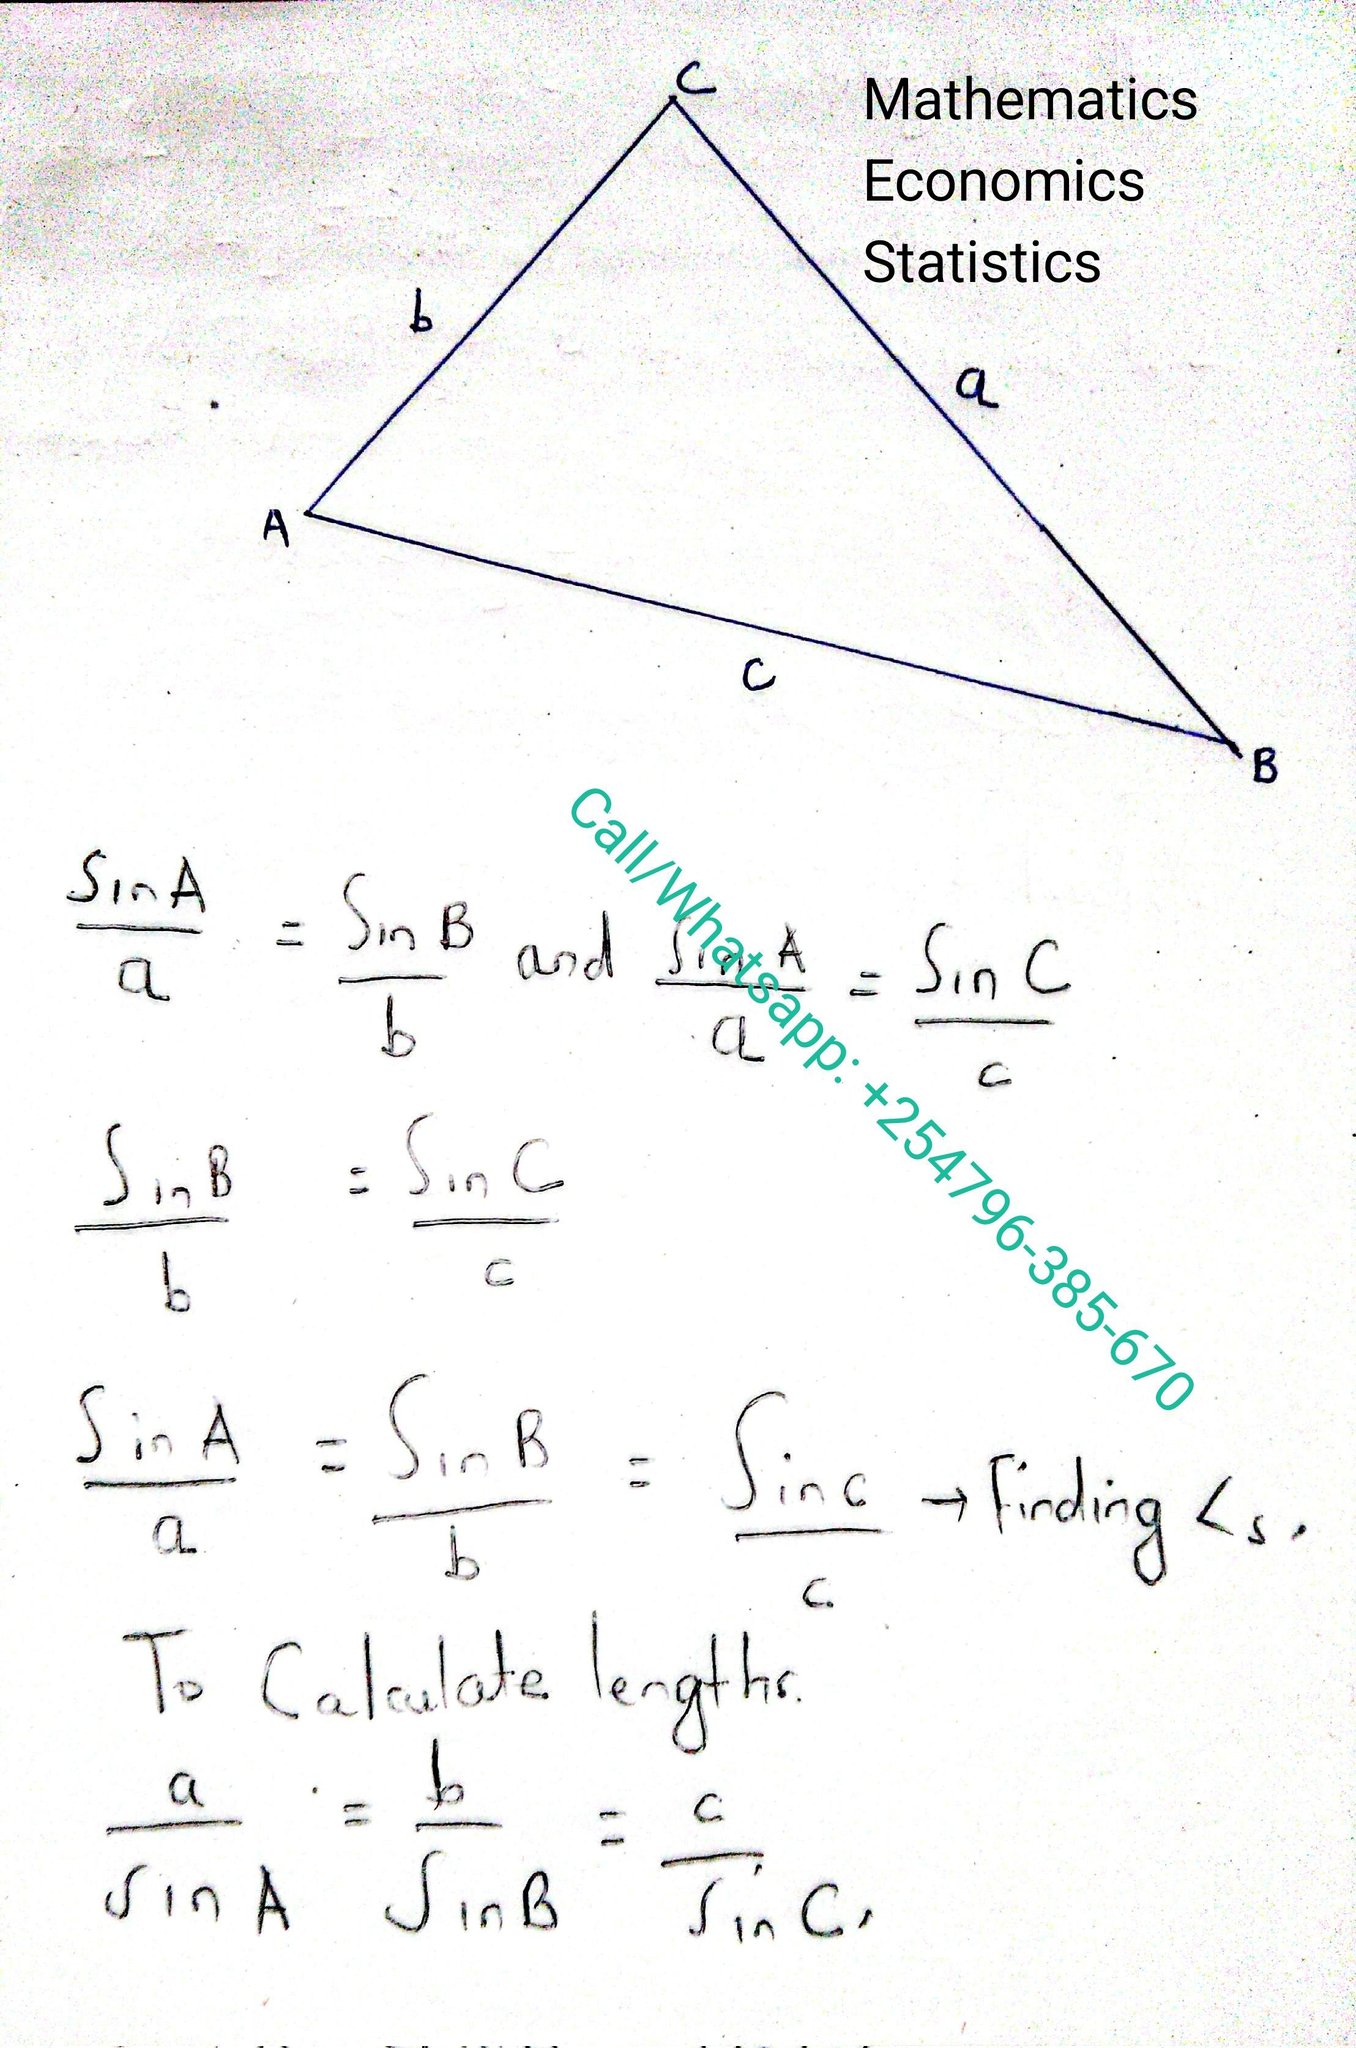 C
Mathematics
Economics
Statistics
b
a
A
c
B
Call/Whatsapp: +254796-385-670
SinA/a = SinB/b and SinA/a = SinC/c
SinB/b = SinC/c
SinA/a = SinB/b = Sinc/c → Finding <s.
To Calculate lengths.
a/SinA = b/SinB = c/SinC.